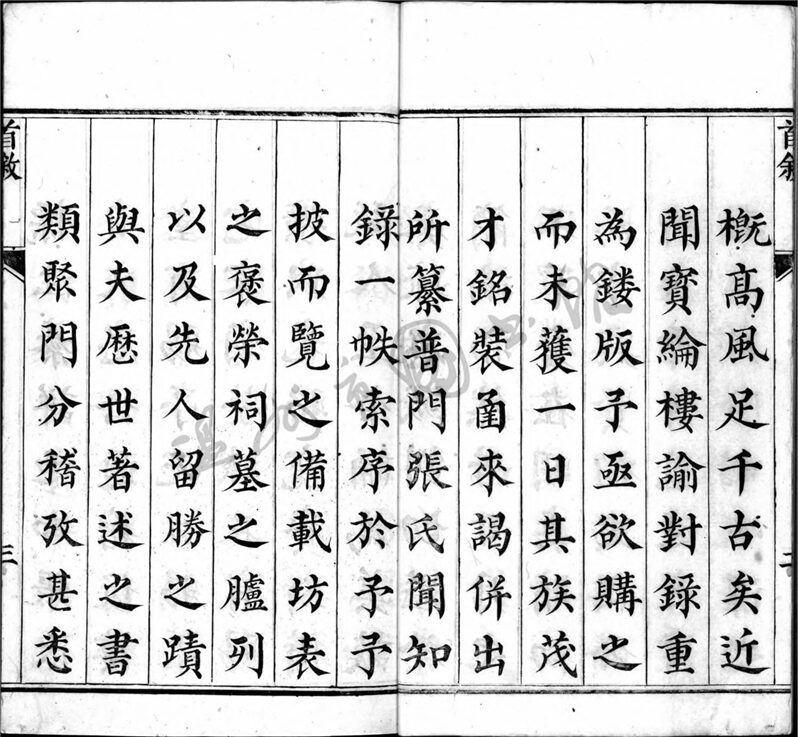 首敘
二
概高風足千古矣近
聞寶綸樓諭對錄重
為鏤版予亟欲購之
而未獲一日其族茂
才銘裝函來謁併出
所纂普門張氏聞知
錄一帙索序於予予
披而覽之備載坊表
之褒榮祠墓之臚列
以及先人留勝之蹟
與夫歷世著述之書
類聚門分稽攷甚悉
首敘
三